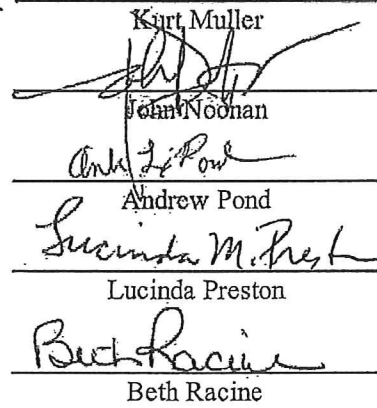 Kurt Muller
John Noonan
Andrew Pond
Lucinda M. Preston
Lucinda Preston
Beth Racine
Beth Racine